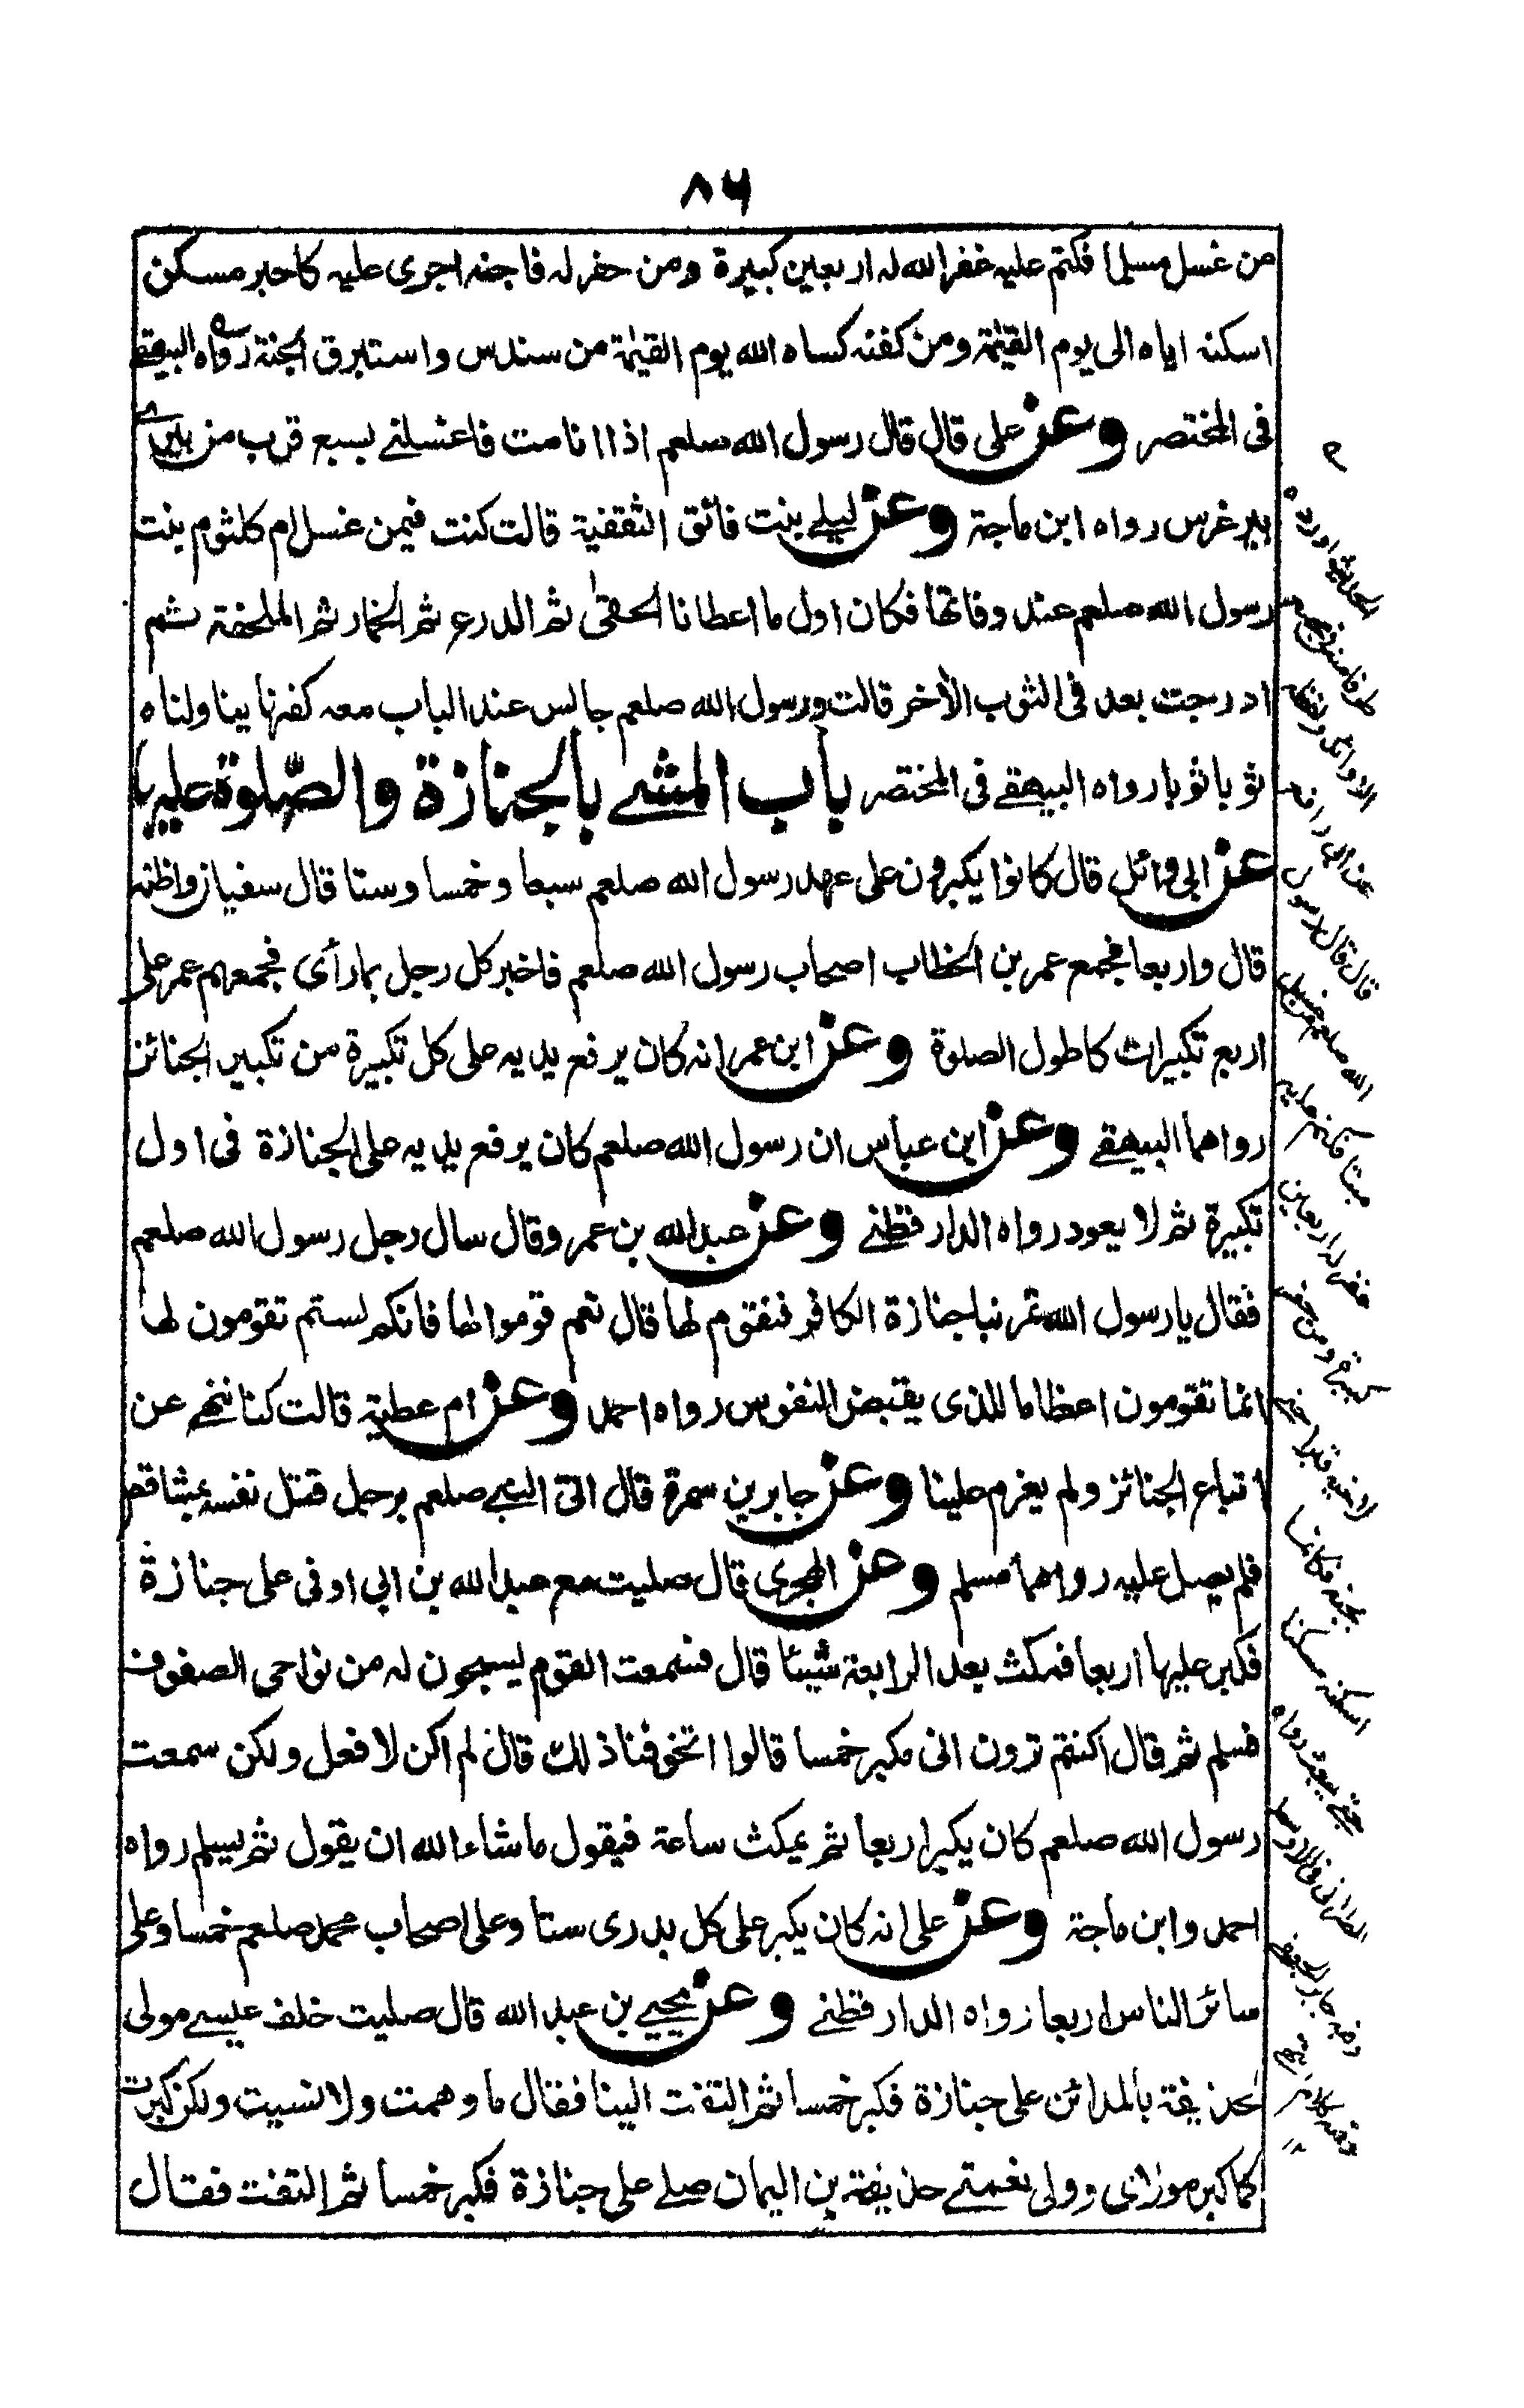 ٨٦
من غسل مسلما فكتم عليه غفر الله له اربعين كبيرة ومن حفر له فاجنه اجرى عليه كاجر مسكن
اسكنه اياه الى يوم القيمة ومن كفنه كساه الله يوم القيمة من سندس واستبرق الجنة رواه البيهقے
فى المختصر وعن على قال قال رسول الله صلعم اذا انا مت فاغسلنے بسبع قرب من بيرے
بير غرس رواه ابن ماجة وعن ليلے بنت قائق الثقفية قالت كنت فيمن غسل ام كلثوم بنت
رسول الله صلعم عند وفاتها فكان اول ما اعطانا الحقى ثم الدرع ثم الخمار ثم الملحفة ثم
ادرجت بعد فى الثوب الآخر قالت ورسول الله صلعم جالس عند الباب معه كفنها يناولناه
ثوبا ثوبا رواه البيهقے فى المختصر باب المشے بالجنازة والصّلوة عليها
عن ابى وائل قال كانوا يكبرون على عهد رسول الله صلعم سبعا وخمسا وستا قال سفيان واظنه
قال واربعا فجمع عمر بن الخطاب اصحاب رسول الله صلعم فاخبر كل رجل بما رأى فجمعهم عمر على
اربع تكبيرات كاطول الصلوة وعن ابن عمر انه كان يرفع يديه على كل تكبيرة من تكبير الجنائز
رواهما البيهقے وعن ابن عباس ان رسول الله صلعم كان يرفع يديه على الجنازة فى اول
تكبيرة ثم لا يعود رواه الدارقطنے وعن عبد الله بن عمر وقال سال رجل رسول الله صلعم
فقال يا رسول الله تمر بنا جنازة الكافر فنقوم لها قال نعم قوموا لها فانكم لستم تقومون لها
انما تقومون اعظاما للذى يقبض النفوس رواه احمد وعن ام عطية قالت كنا ننهے عن
اتباع الجنائز ولم يعزم علينا وعن جابر بن سمرة قال اتى النبے صلعم برجل قتل نفسه بمشاقص
فلم يصل عليه رواهما مسلم وعن الهجرى قال صليت مع عبد الله بن ابى اوفى على جنازة
فكبر عليها اربعا فمكث بعد الرابعة شيئا قال فسمعت القوم يسبحون له من نواحى الصفوف
فسلم ثم قال اكنتم ترون انى مكبر خمسا قالوا اتخوفنا ذلك قال لم اكن لافعل ولكن سمعت
رسول الله صلعم كان يكبر اربعا ثم يمكث ساعة فيقول ما شاء الله ان يقول ثم يسلم رواه
احمد وابن ماجة وعن على انه كان يكبر على كل بدرى ستا وعلى اصحاب محمد صلعم خمسا وعلى
سائر الناس اربعا رواه الدارقطنے وعن يحيے بن عبد الله قال صليت خلف عيسے مولى
لحذيفة بالمدائن على جنازة فكبر خمسا ثم التفت الينا فقال ما وهمت ولا نسيت ولكن كبرت
كما كبر مولاى وولى نعمتے حذيفة بن اليمان صلے على جنازة فكبر خمسا ثم التفت فقال
الحديث اورده
عن ابى رافع
قال قال رسول
الله صلعم من غسل
ميتا فكتم عليه
غفر له اربعين
كبيرة ومن حفر
لاخيه قبرا
اسكنه مسكنا
حتى يبعث رواه